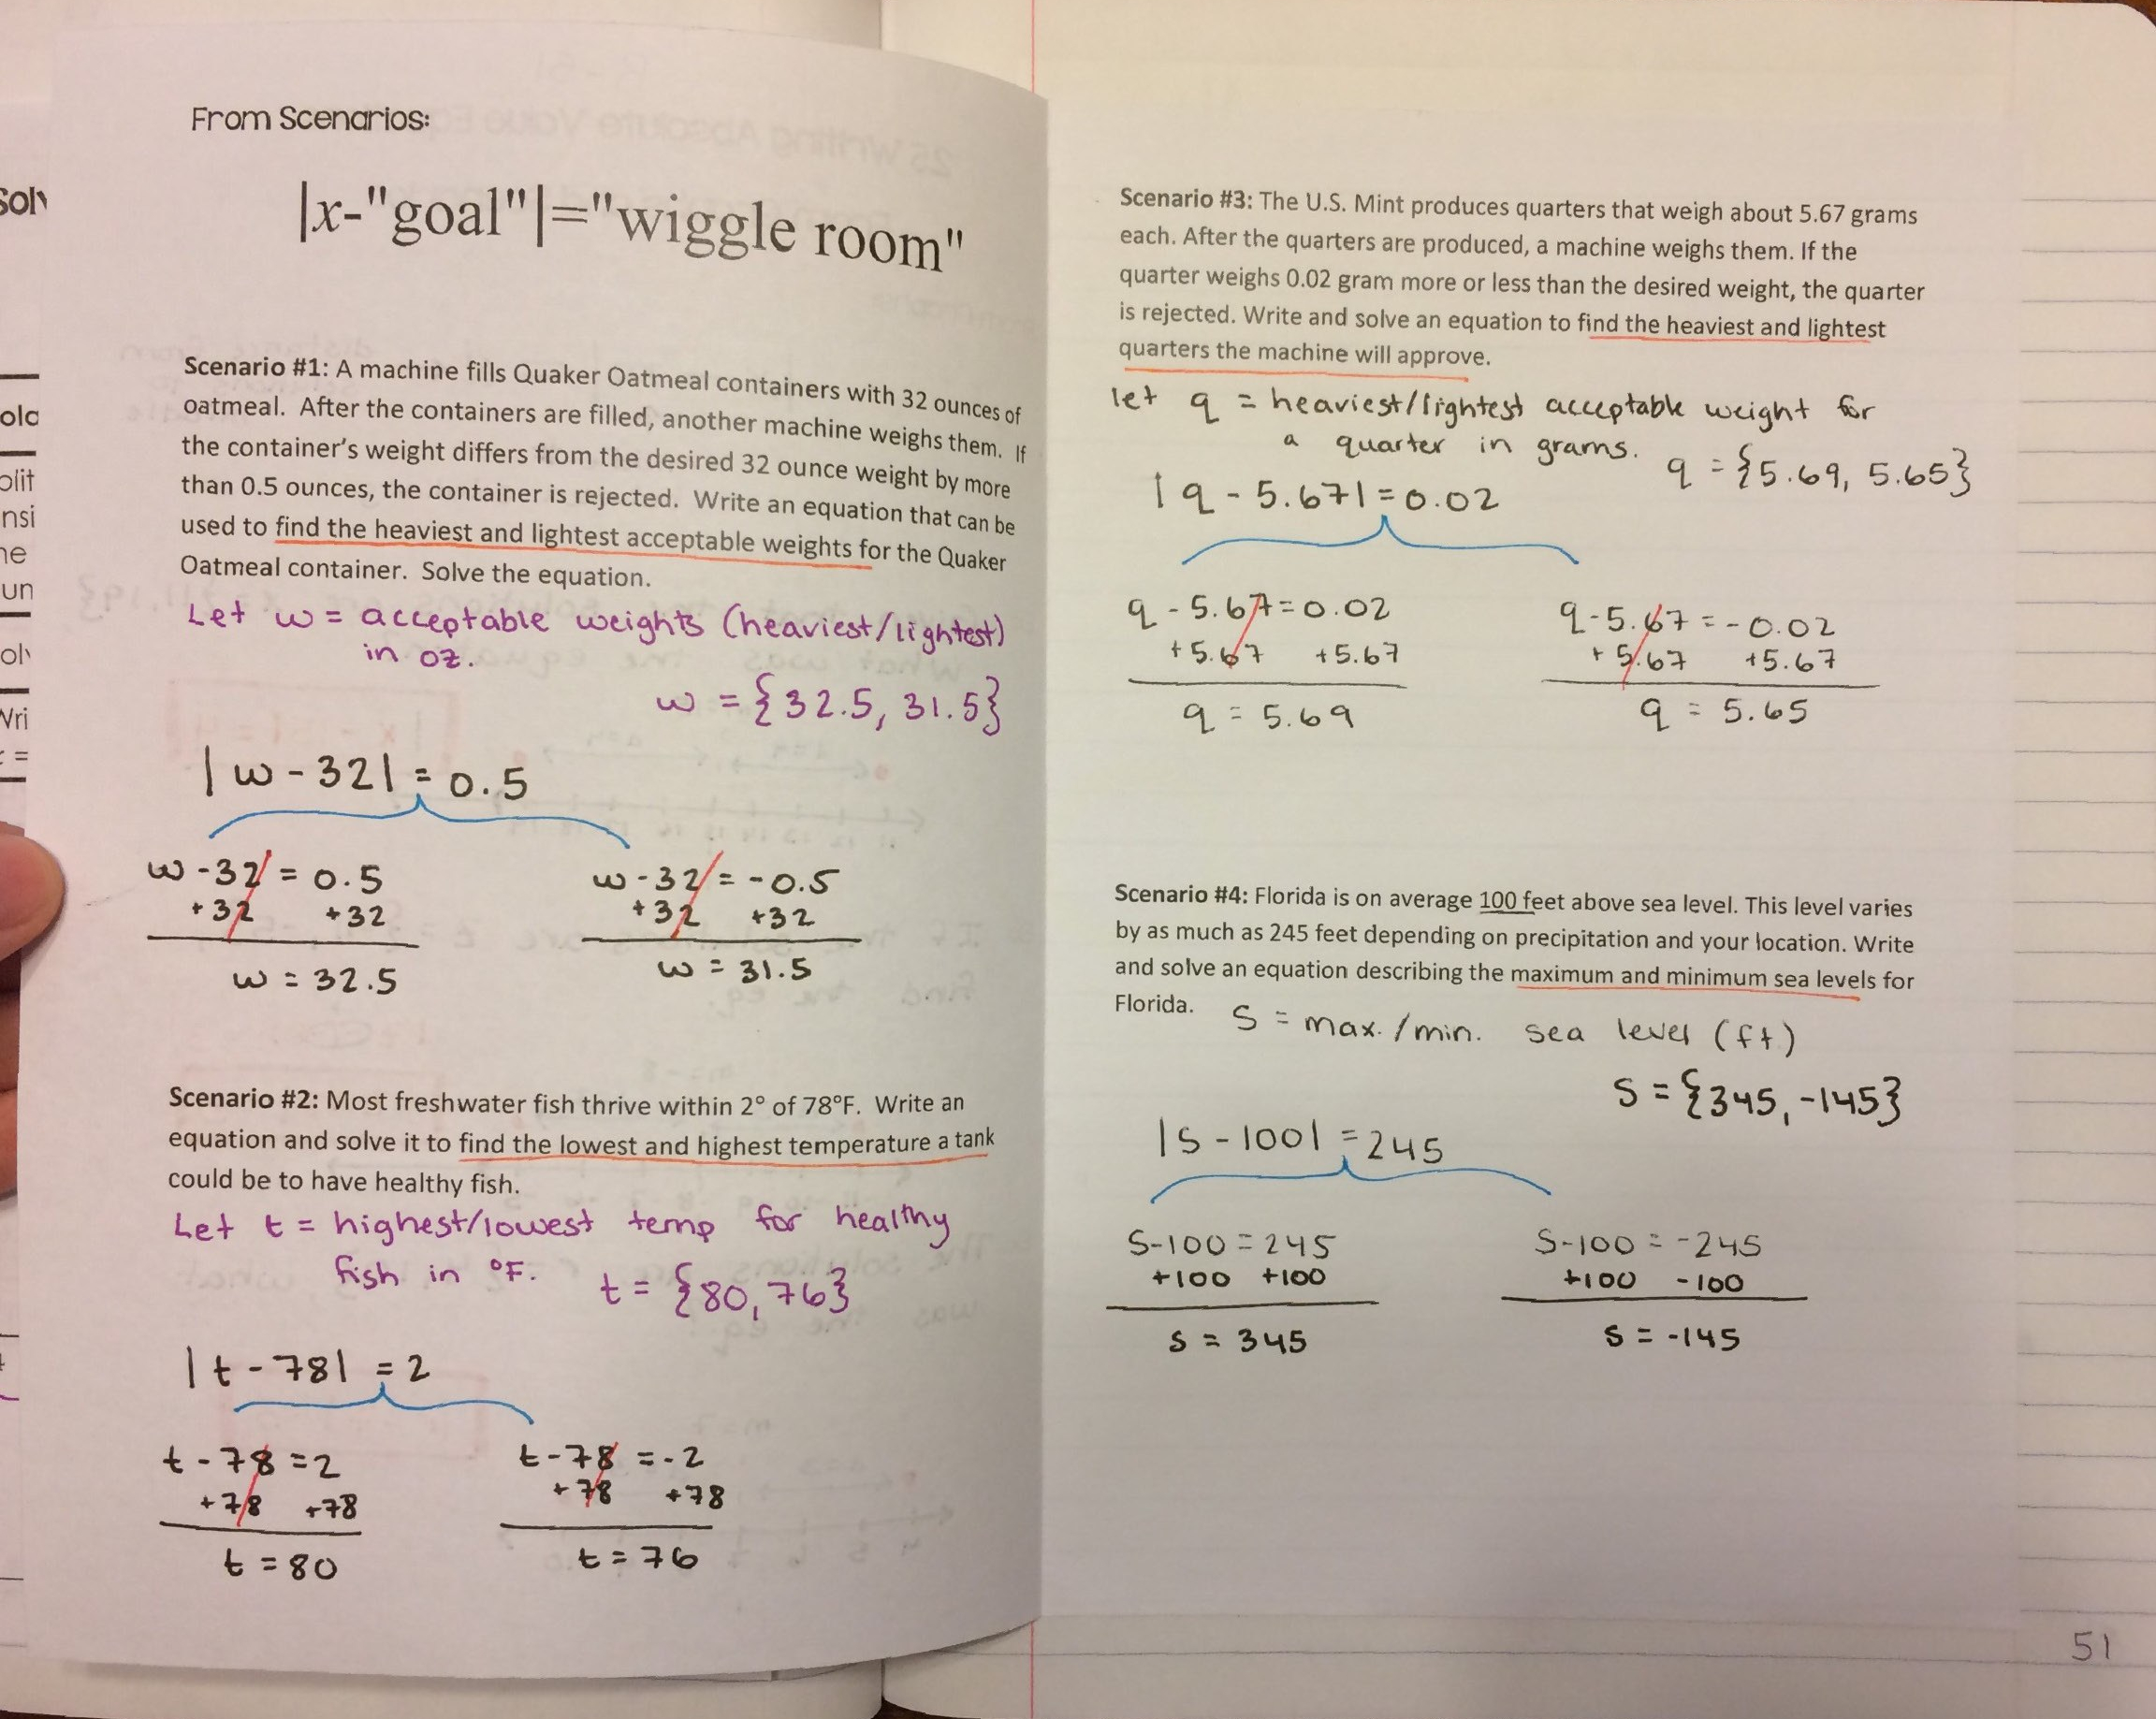 From Scenarios:
|x-"goal"|="wiggle room"
Scenario #1: A machine fills Quaker Oatmeal containers with 32 ounces of
oatmeal. After the containers are filled, another machine weighs them. If
the container's weight differs from the desired 32 ounce weight by more
than 0.5 ounces, the container is rejected. Write an equation that can be
used to find the heaviest and lightest acceptable weights for the Quaker
Oatmeal container. Solve the equation.
Let w = acceptable weights (heaviest/lightest)
in oz.
w = {32.5, 31.5}
|w - 32| = 0.5
w - 32 = 0.5
+32 +32
w = 32.5
w - 32 = -0.5
+32 +32
w = 31.5
Scenario #2: Most freshwater fish thrive within 2° of 78°F. Write an
equation and solve it to find the lowest and highest temperature a tank
could be to have healthy fish.
Let t = highest/lowest temp for healthy
fish in °F.
t = {80, 76}
|t - 78| = 2
t - 78 = 2
+78 +78
t = 80
t - 78 = -2
+78 +78
t = 76
Scenario #3: The U.S. Mint produces quarters that weigh about 5.67 grams
each. After the quarters are produced, a machine weighs them. If the
quarter weighs 0.02 gram more or less than the desired weight, the quarter
is rejected. Write and solve an equation to find the heaviest and lightest
quarters the machine will approve.
let q = heaviest/lightest acceptable weight for
a quarter in grams.
q = {5.69, 5.65}
|q - 5.67| = 0.02
q - 5.67 = 0.02
+5.67 +5.67
q = 5.69
q - 5.67 = -0.02
+5.67 +5.67
q = 5.65
Scenario #4: Florida is on average 100 feet above sea level. This level varies
by as much as 245 feet depending on precipitation and your location. Write
and solve an equation describing the maximum and minimum sea levels for
Florida.
S = max./min. sea level (ft)
S = {345, -145}
|S - 100| = 245
S-100 = 245
+100 +100
S = 345
S-100 = -245
+100 -100
S = -145
51